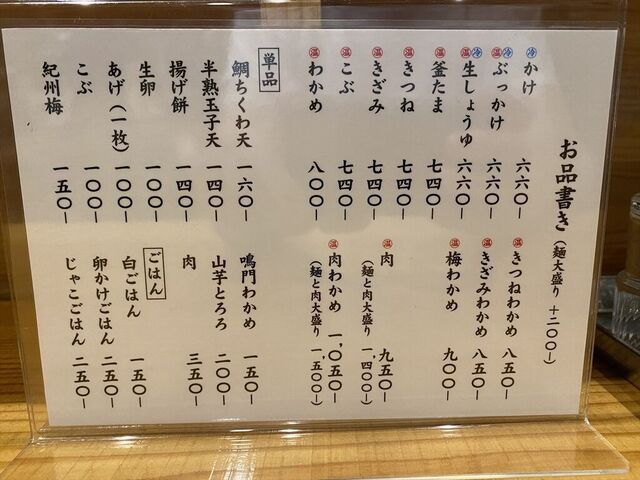 お品書き(麺大盛り +二〇〇ー)
冷かけ 六六〇ー
温冷ぶっかけ 六六〇ー
温冷生しょうゆ 六六〇ー
温釜たま 七四〇ー
温きつね 七四〇ー
温きざみ 七四〇ー
温こぶ 七四〇ー
温わかめ 八〇〇ー
温きつねわかめ 八五〇ー
温きざみわかめ 八五〇ー
温梅わかめ 九〇〇ー
温肉 九五〇ー
(麺と肉大盛り 一,四〇〇ー)
温肉わかめ 一,〇五〇ー
(麺と肉大盛り 一,五〇〇ー)
単品
鯛ちくわ天 一六〇ー
半熟玉子天 一四〇ー
揚げ餅 一四〇ー
生卵 一〇〇ー
あげ(一枚) 一〇〇ー
こぶ 一〇〇ー
紀州梅 一五〇ー
鳴門わかめ 一五〇ー
山芋とろろ 二〇〇ー
肉 三五〇ー
ごはん
白ごはん 一五〇ー
卵かけごはん 二五〇ー
じゃこごはん 二五〇ー